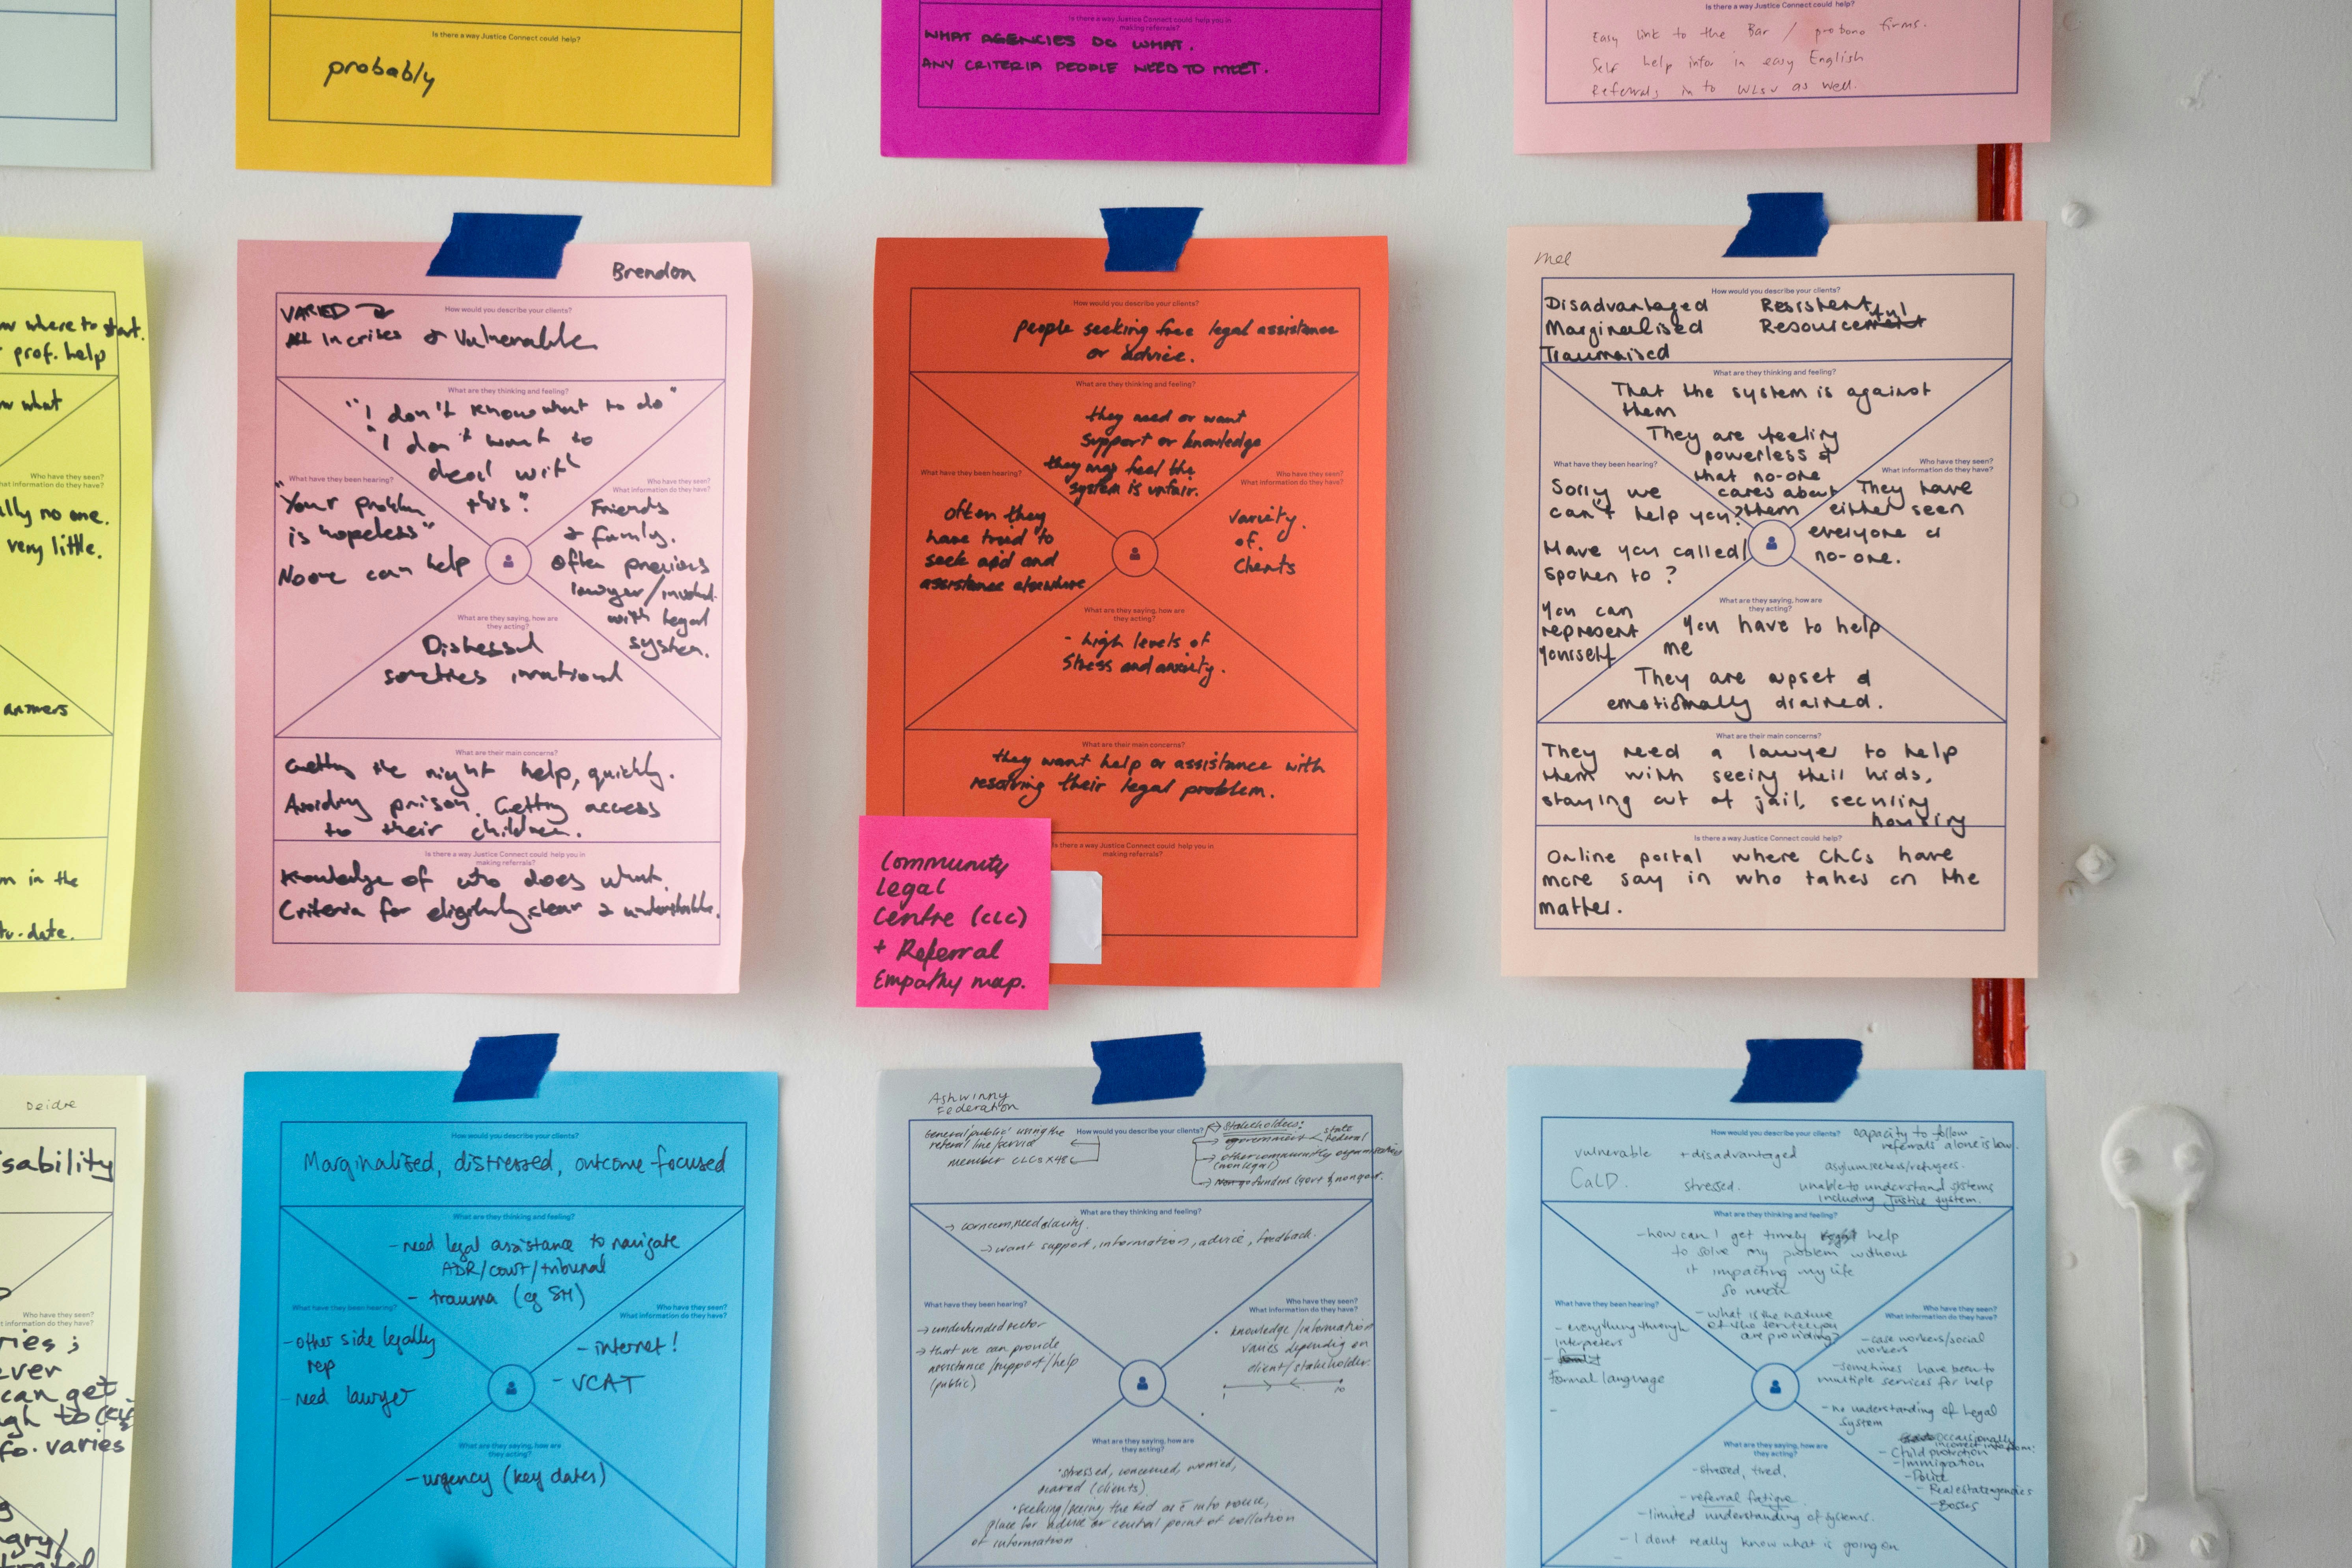 Is there a way Justice Connect could help?
probably
Is there a way Justice Connect could help you in
making referrals?
WHAT AGENCIES DO WHAT.
ANY CRITERIA PEOPLE NEED TO MEET.
Is there a way Justice Connect could help?
Easy link to the Bar / probono firms.
Self help infor in easy English
Referrals in to WLSV as well.
where to start.
prof. help
what
Who have they seen?
What information do they have?
no one.
very little.
answers
in the
date.
Brendon
How would you describe your clients?
VARIED
All in crises & Vulnerable
What are they thinking and feeling?
"I don't know what to do"
"I don't want to
deal with
this."
What have they been hearing?
"Your problem
is hopeless"
No one can help
Who have they seen?
What information do they have?
Friends
& family.
Often previous
lawyer/involvd.
with legal
system.
What are they saying, how are
they acting?
Distressed
sometimes irrational
What are their main concerns?
Getting the right help, quickly.
Avoiding prison. Getting access
to their children.
Is there a way Justice Connect could help you in
making referrals?
Knowledge of who does what.
Criteria for eligibility, clear &
How would you describe your clients?
people seeking free legal assistance
or advice.
What are they thinking and feeling?
they need or want
support or knowledge
they may feel the
system is unfair.
What have they been hearing?
often they
have tried to
seek aid and
assistance elsewhere
Who have they seen?
What information do they have?
variety
of
clients
What are they saying, how are
they acting?
- high levels of
stress and anxiety.
What are their main concerns?
they want help or assistance with
resolving their legal problem.
Is there a way Justice Connect could help you in
making referrals?
Community
Legal
Centre (CLC)
+ Referral
Empathy map.
Mel
How would you describe your clients?
Disadvantaged Resistent
Marginalised Resourceful
Traumaised
What are they thinking and feeling?
That the system is against
them
They are feeling
powerless &
that no-one
cares about
them
What have they been hearing?
Sorry we
can't help you?
Have you called/
spoken to?
You can
represent
yourself
Who have they seen?
What information do they have?
They have
either seen
everyone or
no-one.
What are they saying, how are
they acting?
You have to help
me
They are upset &
emotionally drained.
What are their main concerns?
They need a lawyer to help
them with seeing their kids,
staying out of jail, securing
housing
Is there a way Justice Connect could help?
Online portal where CLCs have
more say in who takes on the
matter.
Deidre
Who have they seen?
What information do they have?
can get
varies
How would you describe your clients?
Marginalised, distressed, outcome focused
What are they thinking and feeling?
- need legal assistance to navigate
ADR/court/tribunal
- trauma (eg SH)
What have they been hearing?
- other side legally
rep
- need lawyer
Who have they seen?
What information do they have?
- internet!
- VCAT
What are they saying, how are
they acting?
- urgency (key dates)
Ashwinny
Federation
How would you describe your clients?
General public using the
referral line/service
member CLCs x48
Stakeholders:
government
state
federal
other community organisations
(non legal)
funders (govt & nongovt.
What are they thinking and feeling?
→ concern, need clarity.
→ want support, information, advice, feedback.
What have they been hearing?
→ underfunded sector
→ that we can provide
assistance/support/help
(public)
Who have they seen?
What information do they have?
knowledge/information
varies depending on
client/stakeholder.
1 10
What are they saying, how are
they acting?
• stressed, concerned, worried,
scared (clients)
place for advice or central point of collation
of information
How would you describe your clients?
capacity to follow
referrals alone is low.
vulnerable + disadvantaged
asylum seekers/refugees.
CaLD. stressed.
unable to understand systems
including Justice system.
What are they thinking and feeling?
- how can I get timely help
to solve my problem without
it impacting my life
so much
- what is the nature
of the service you
are providing?
What have they been hearing?
- everything through
interpreters
formal language
Who have they seen?
What information do they have?
- case workers/social
workers
- sometimes have been to
multiple services for help
- no understanding of legal
system
occasionally
incorrect info from:
- Child protection
- Immigration
- Police
- Real estate agencies
- Bosses
What are they saying, how are
they acting?
- stressed, tired.
- referral fatigue
- limited understanding of systems.
- I dont really know what is going on